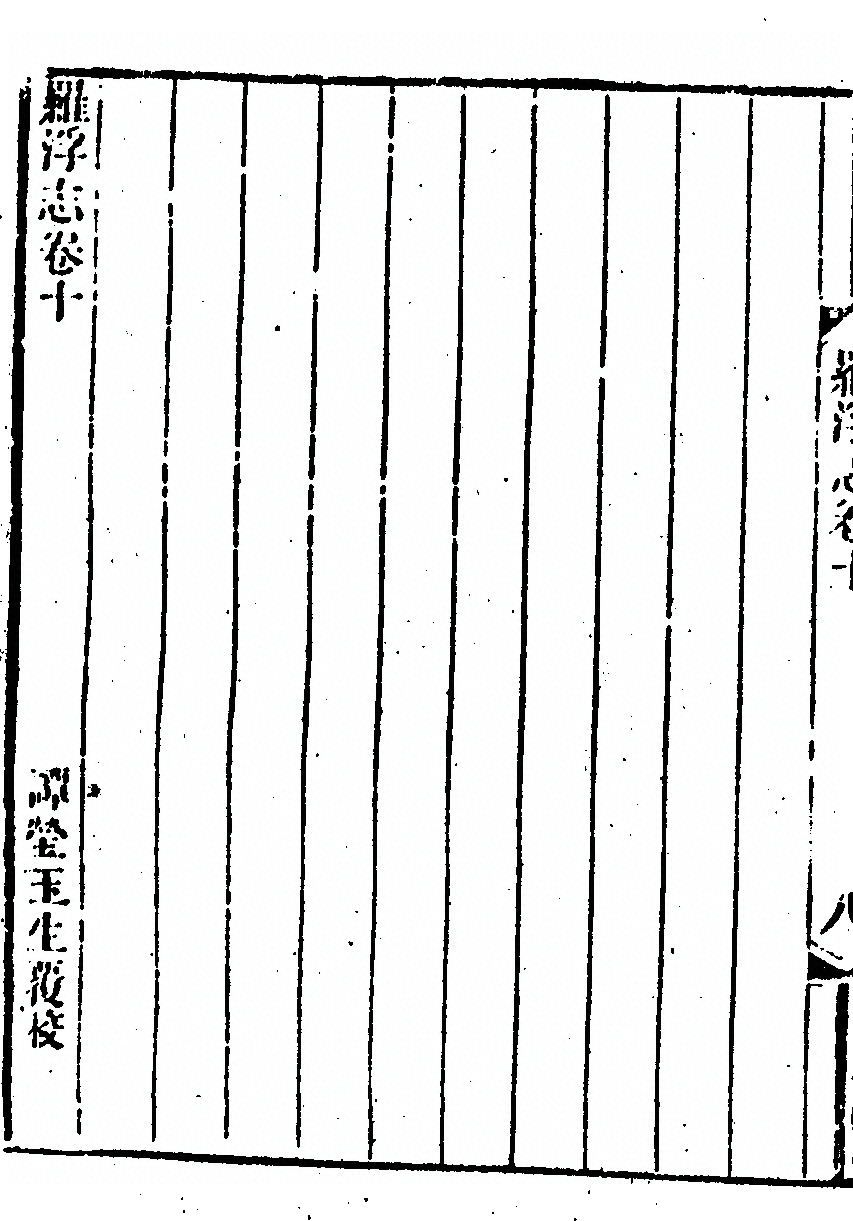 羅浮志卷十
八
羅浮志卷十
譚瑩玉生覆校